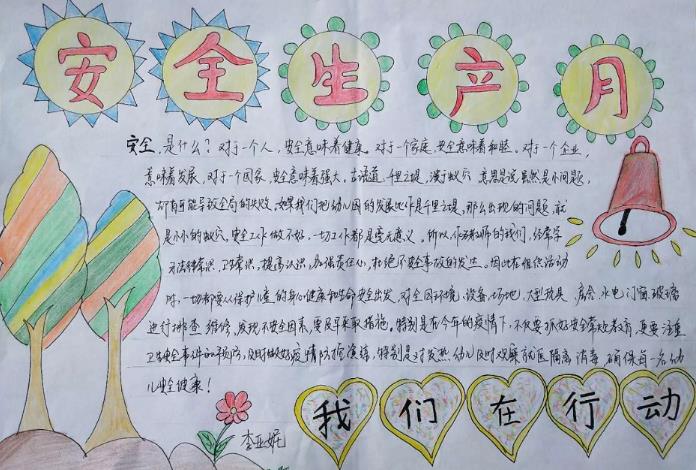 安全生产月
安全,是什么?对于一个人,安全意味着健康。对于一个家庭,安全意味着和睦。对于一个企业,
意味着发展,对于一个国家,安全意味着强大。古语道,千里之堤,溃于蚁穴。意思是说虽然是小问题,
却有可能导致全局的失败。如果我们把幼儿园的发展比作是千里之堤,那么出现的问题就
是小小的蚁穴。安全工作做不好,一切工作都是毫无意义。所以作为教师的我们,经常学
习法律常识,卫生常识,提高认识,加强责任心,杜绝不安全事故的发生。因此在组织活动
时,一切都要从保护儿童的身心健康和生命安全出发,对全园环境、设备、场地、大型玩具、房舍、水电、门窗、玻璃
进行排查、维修,发现不安全因素,要及早采取措施。特别是在今年的疫情下,不仅要抓好安全常规教育,更要注重
卫生安全事件的预防,及时做好疫情防控演练,特别是对发热幼儿及时观察就医隔离消毒,确保每一名幼
儿安全健康!
李亚娓
我们在行动